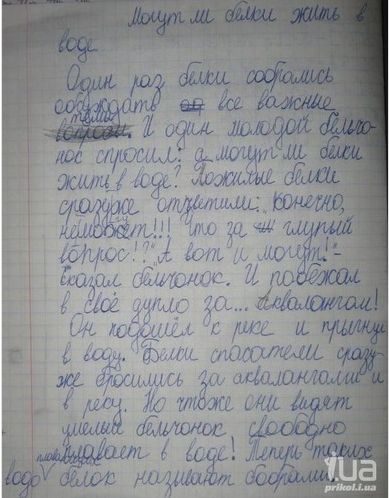 Могут ли белки жить в
воде
Один раз белки собрались
обсуждать все важные
темы
вопросы. И один молодой бельчо-
нок спросил: а могут ли белки
жить в воде? Пожилые белки
сразуже ответили: конечно,
неможет!!! Что за глупый
вопрос!? "А вот и могут!"-
сказал бельчонок. И побежал
в своё дупло за... Аквалангом!
Он подошёл к реке и прыгнул
в воду. Белки спасатели сразу-
же бросились за аквалангами и
в реку. Но чтоже они видят
умелый бельчонок свободно
плавает в воде! Теперь таких
водо плавающих белок называют бобрами.
ua
prikol.i.ua